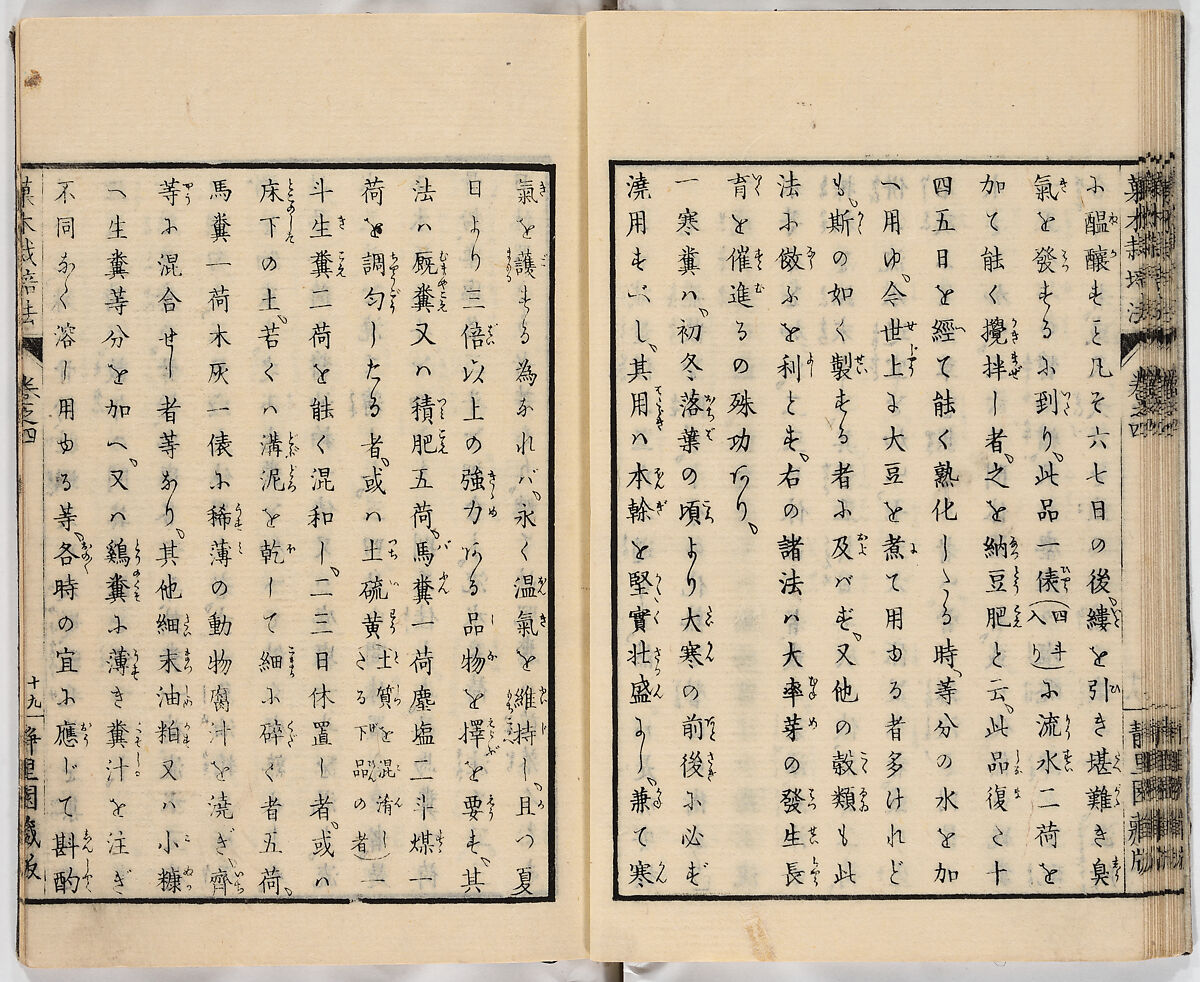 に醞釀すこと凡そ六七日の後縷を引き堪難き臭
氣を發するに到り、此品一俵(四斗入り)に流水二荷を
加て能く攪拌し者、之を納豆肥と云、此品復さ十
四五日を經て能く熟化したる時、等分の水を加
へ用ゆ、今世上に大豆を煮て用ゆる者多けれど
も、斯の如く製する者に及ばず、又他の穀類も此
法に倣ふを利とす、右の諸法は大率芽の發生長
育を催進るの殊功あり、
一寒糞は、初冬落葉の頃より大寒の前後に必ず
澆用すべし、其用は本幹を堅實壮盛にし、兼て寒
氣を護する為なれば、永く温氣を維持し、且つ夏
日より三倍以上の強力ある品物を擇を要す、其
法は廐糞又は積肥五荷、馬糞一荷塵塩二斗煤一
荷を調匀したる者、或は土硫黄(土質を混淆したる下品の者)一
斗生糞二荷を能く混和し、二三日休置し者、或は
床下の土、若くは溝泥を乾して細に碎く者五荷、
馬糞一荷木灰一俵に稀薄の動物腐汁を澆ぎ、齊
等に混合せし者等なり、其他細末油粕又は小糠
へ生糞等分を加へ、又は鷄糞に薄き糞汁を注ぎ
不同なく溶し用ゆる等、各時の宜に應じて斟酌
菓木栽培法
卷之四
十九
靜里園藏版